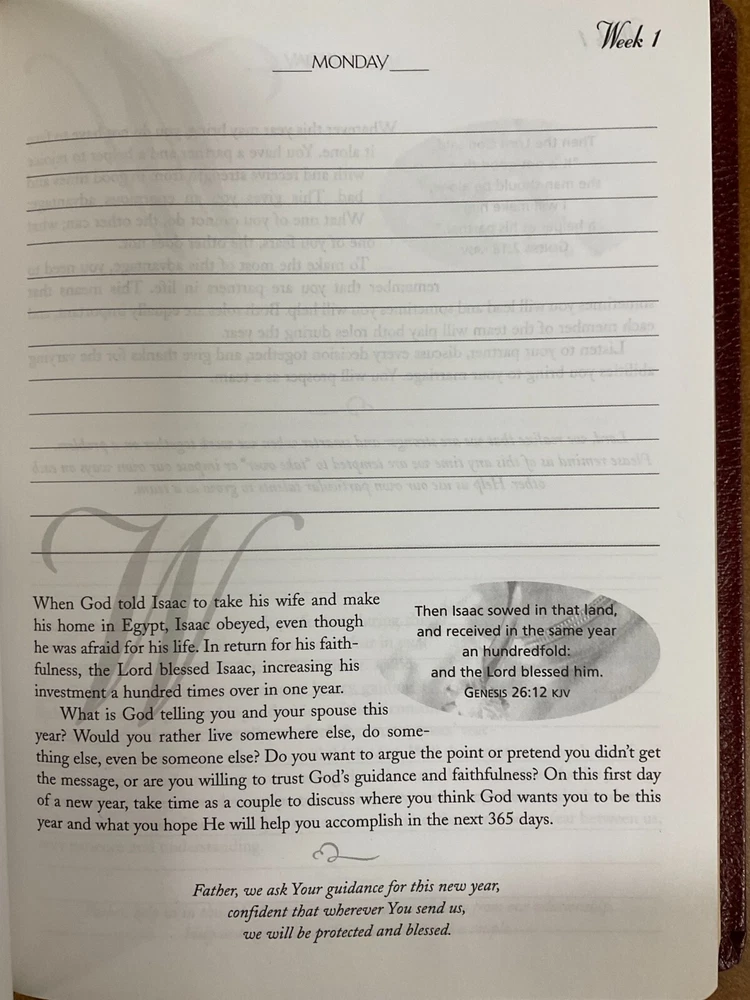 Week 1
MONDAY
When God told Isaac to take his wife and make
his home in Egypt, Isaac obeyed, even though
he was afraid for his life. In return for his faith-
fulness, the Lord blessed Isaac, increasing his
investment a hundred times over in one year.
What is God telling you and your spouse this
year? Would you rather live somewhere else, do some-
thing else, even be someone else? Do you want to argue the point or pretend you didn't get
the message, or are you willing to trust God's guidance and faithfulness? On this first day
of a new year, take time as a couple to discuss where you think God wants you to be this
year and what you hope He will help you accomplish in the next 365 days.
Then Isaac sowed in that land,
and received in the same year
an hundredfold:
and the Lord blessed him.
GENESIS 26:12 KJV
Father, we ask Your guidance for this new year,
confident that wherever You send us,
we will be protected and blessed.